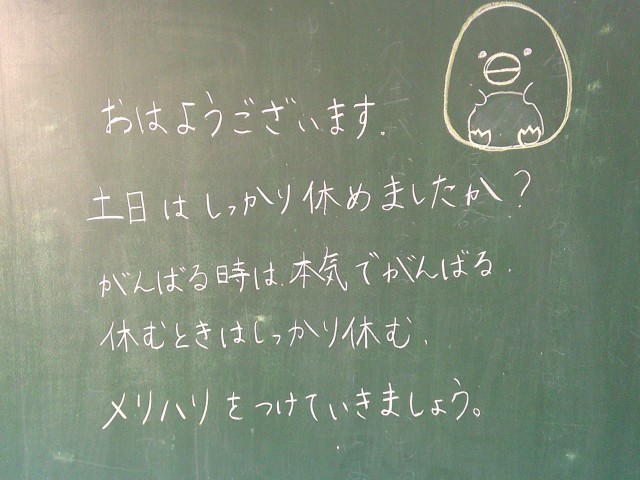 おはようございます.
土日はしっかり休めましたか?
がんばる時は.本気でがんばる.
休むときはしっかり休む.
メリハリをつけていきましょう。